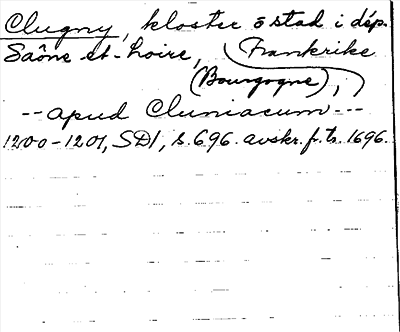 Clugny, kloster o stad i dép.
Saône et-Loire, (Frankrike
(Bourgogne), )
-- apud Cluniacum ---
1200-1201, SD1, s. 696. avskr. fr. 1696.